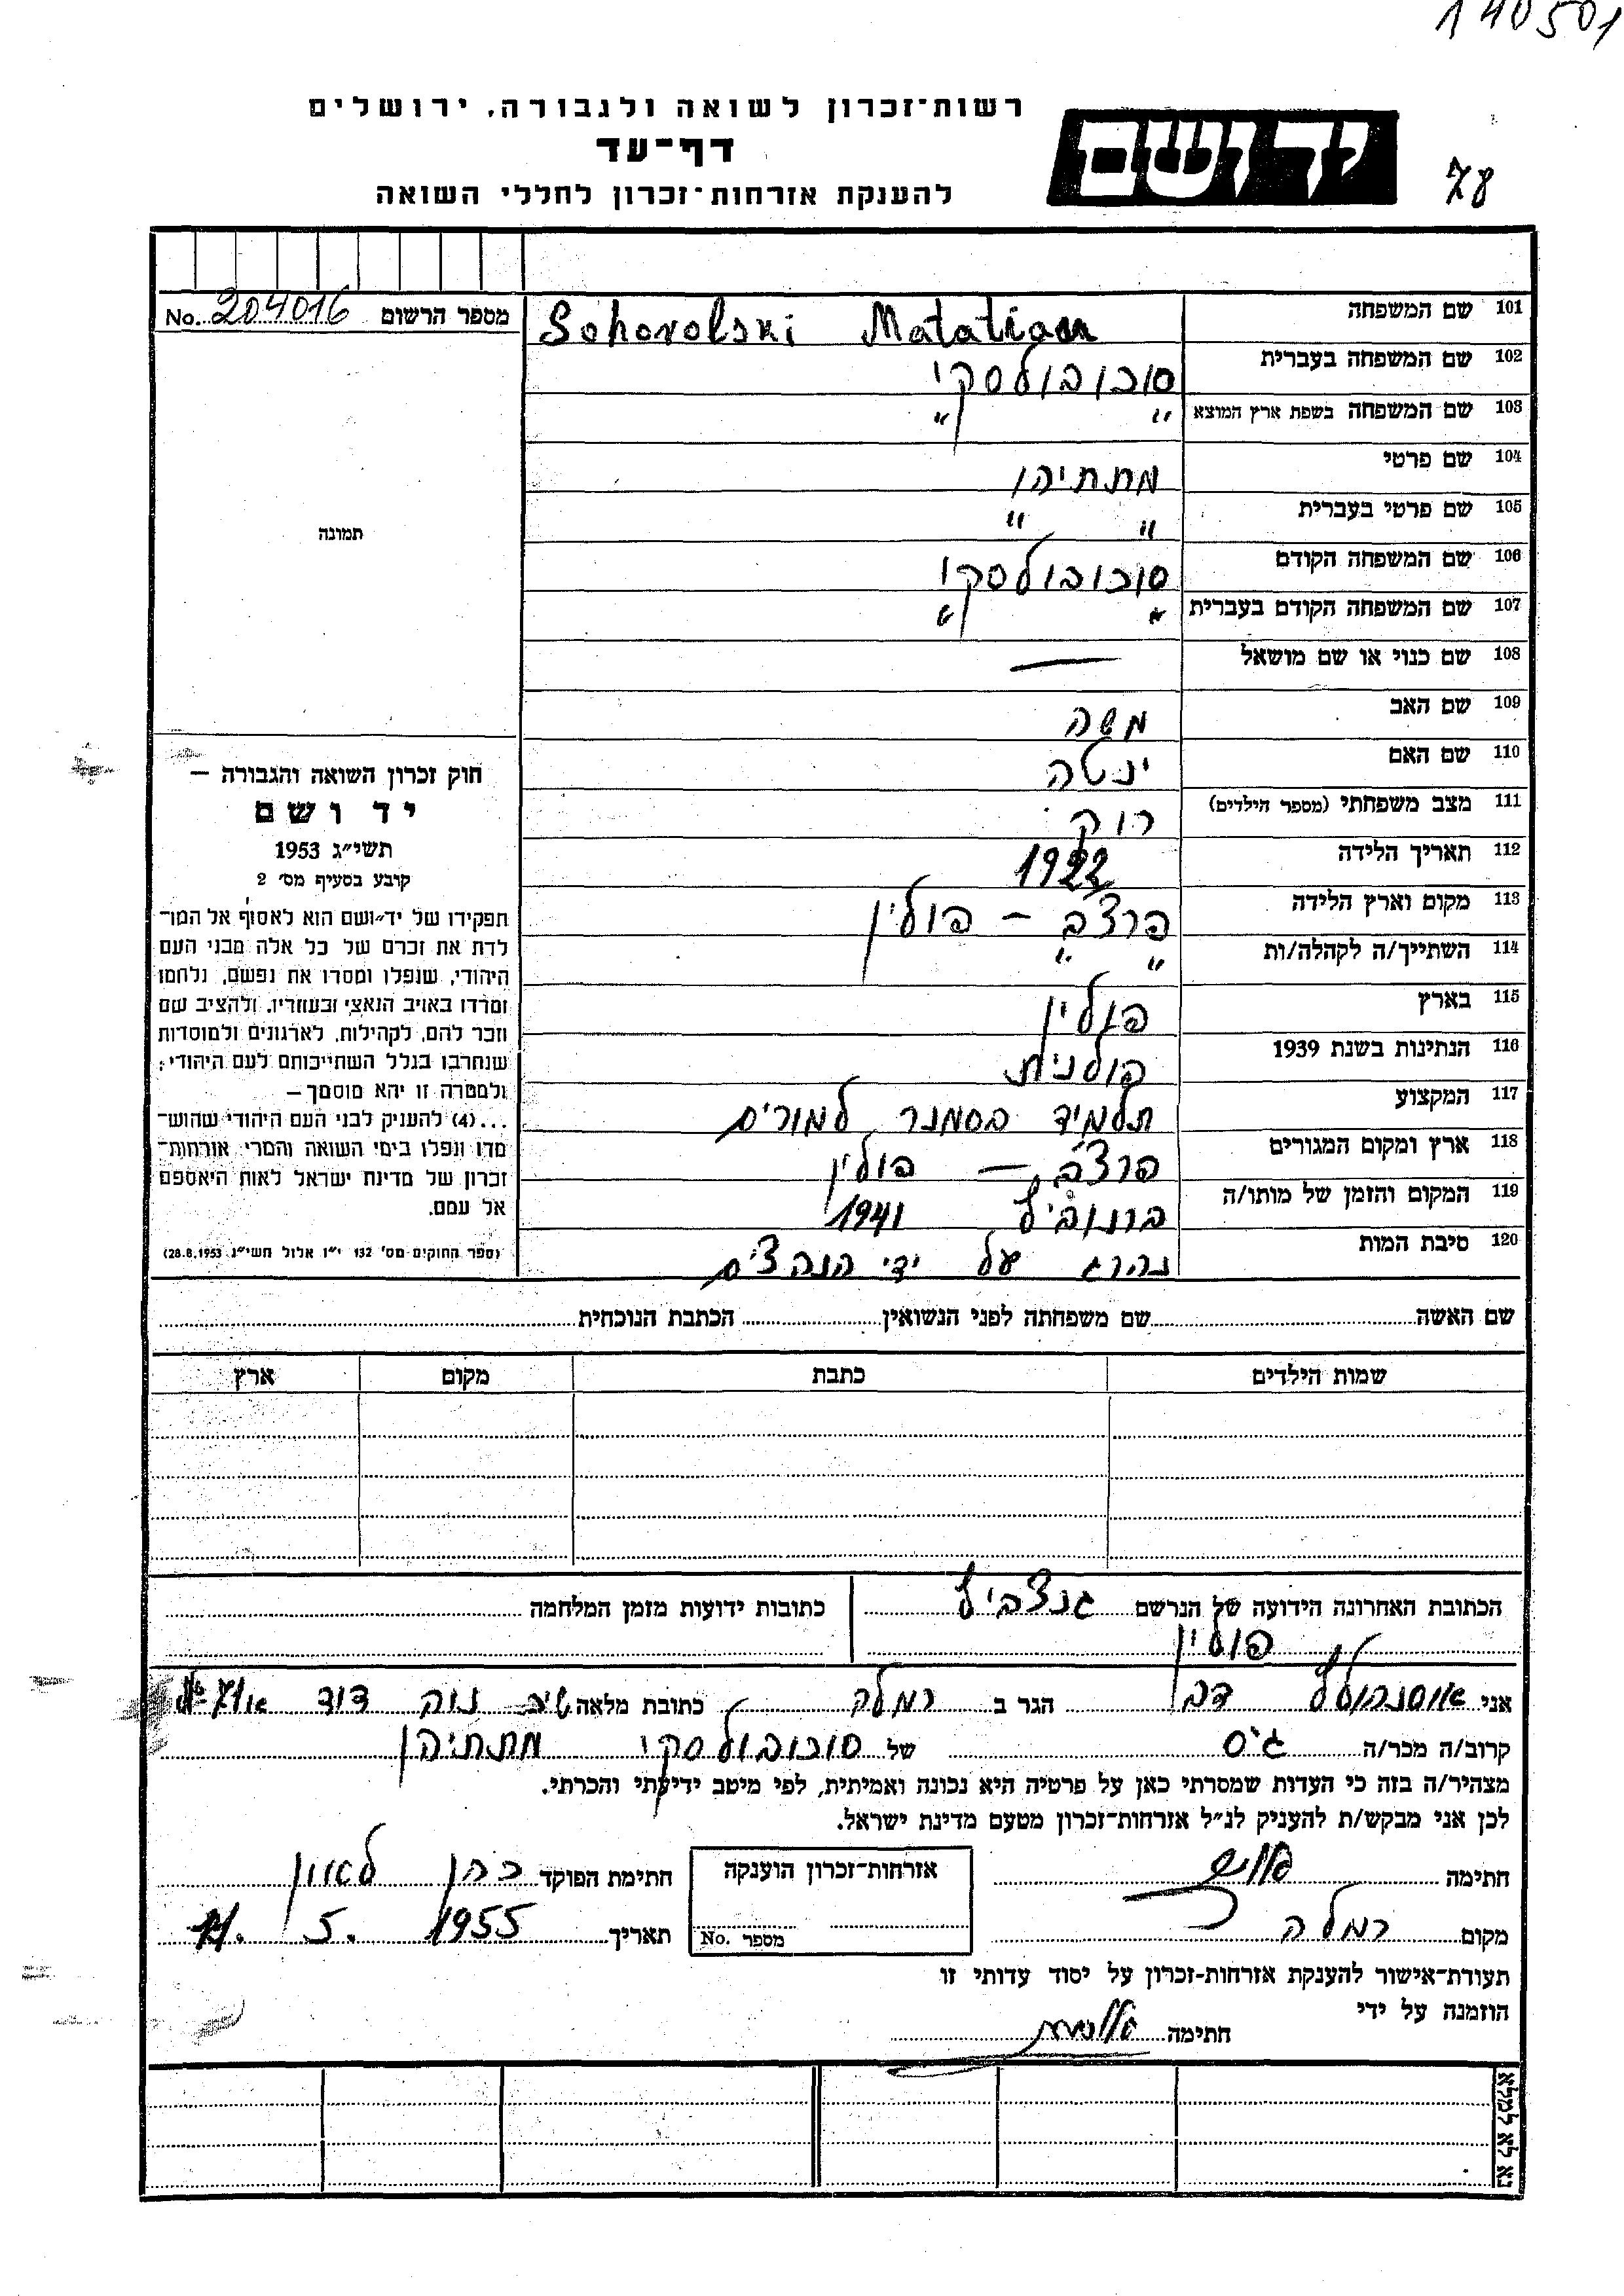 140501
רשות־זכרון לשואה ולגבורה, ירושלים
דף־עד
להענקת אזרחות־זכרון לחללי השואה
יד ושם
78
מספר הרשום No. 204016
101 שם המשפחה Sohovolski Matatiau
102 שם המשפחה בעברית סוכובולסקי
103 שם המשפחה בשפת ארץ המוצא " "
104 שם פרטי מתתיהו
105 שם פרטי בעברית " "
106 שם המשפחה הקודם סוכובולסקי
107 שם המשפחה הקודם בעברית " "
108 שם כנוי או שם מושאל —
109 שם האב משה
110 שם האם ינטה
111 מצב משפחתי (מספר הילדים) רוק
112 תאריך הלידה 1922
113 מקום וארץ הלידה – פולין
114 השתייך/ה לקהלה/ות " "
115 בארץ פולין
116 הנתינות בשנת 1939 פולנית
117 המקצוע תלמיד בסמנר למורים
118 ארץ ומקום המגורים – פולין
119 המקום והזמן של מותו/ה 1941
120 סיבת המות נהרג על ידי הנהצים
תמונה
חוק זכרון השואה והגבורה –
יד ושם
תשי״ג 1953
קובע בסעיף מס׳ 2
תפקידו של יד־ושם הוא לאסוף אל המו־
לדת את זכרם של כל אלה מבני העם
היהודי, שנפלו ומסרו את נפשם, נלחמו
ומרדו באויב הנאצי ובעוזריו, ולהציב שם
וזכר להם, לקהילות, לארגונים ולמוסדות
שנחרבו בגלל השתייכותם לעם היהודי;
ולמטרה זו יהא מוסמך –
...(4) להעניק לבני העם היהודי שהוש־
מדו ונפלו בימי השואה והמרי אזרחות־
זכרון של מדינת ישראל לאות היאספם
אל עמם.
(ספר החוקים מס׳ 132 י״ז אלול תשי״ג 28.8.1953)
שם האשה שם משפחתה לפני הנשואין הכתבת הנוכחית
שמות הילדים כתבת מקום ארץ
הכתובת האחרונה הידועה של הנרשם
פולין
כתובות ידועות מזמן המלחמה
אני דב הגר ב רמלה כתובת מלאה נוה דוד
קרוב/ה מכר/ה גיס של סוכובולסקי מתתיהו
מצהיר/ה בזה כי העדות שמסרתי כאן על פרטיה היא נכונה ואמיתית, לפי מיטב ידיעתי והכרתי.
לכן אני מבקש/ת להעניק לנ״ל אזרחות־זכרון מטעם מדינת ישראל.
חתימה
אזרחות־זכרון הוענקה
מספר No.
חתימת הפוקד כהן לאון
מקום רמלה
תאריך 11. 5. 1955
תעודת־אישור להענקת אזרחות־זכרון על יסוד עדותי זו
הוזמנה על ידי
חתימה
נא לא למלא